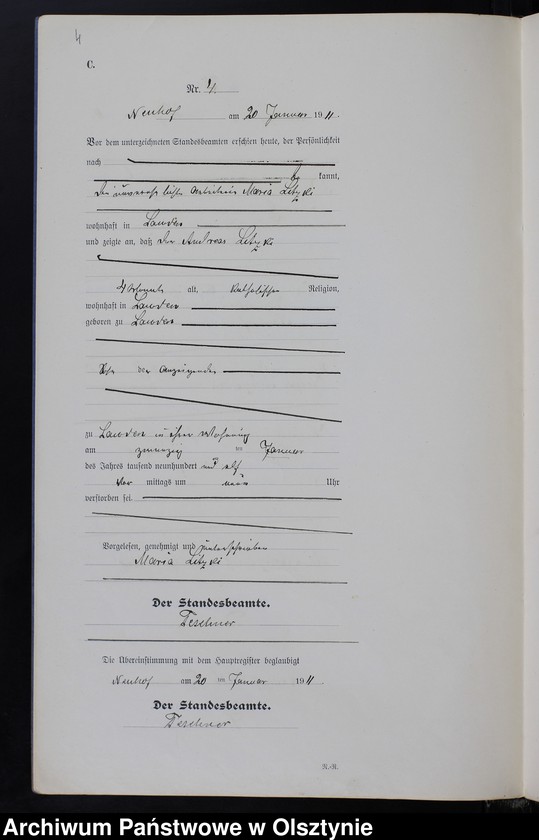 4
C.
Nr. 4.
Neuhof am 20 Januar 1911.
Vor dem unterzeichneten Standesbeamten erschien heute, der Persönlichkeit
nach
kannt,
die unverehelichte Arbeiterin Maria Litzki
wohnhaft in Lauden
und zeigte an, daß der Andreas Litzki
4 Monate alt, katholischer Religion,
wohnhaft in Lauden
geboren zu Lauden
Sohn der Anzeigenden
zu Lauden in ihrer Wohnung
am zwanzig ten Januar
des Jahres tausend neunhundert und elf
vor mittags um neun Uhr
verstorben sei.
Vorgelesen, genehmigt und unterschrieben
Maria Litzki
Der Standesbeamte.
Teschner
Die Übereinstimmung mit dem Hauptregister beglaubigt
Neuhof am 20 ten Januar 1911
Der Standesbeamte.
Teschner
R.-R.
Archiwum Państwowe w Olsztynie